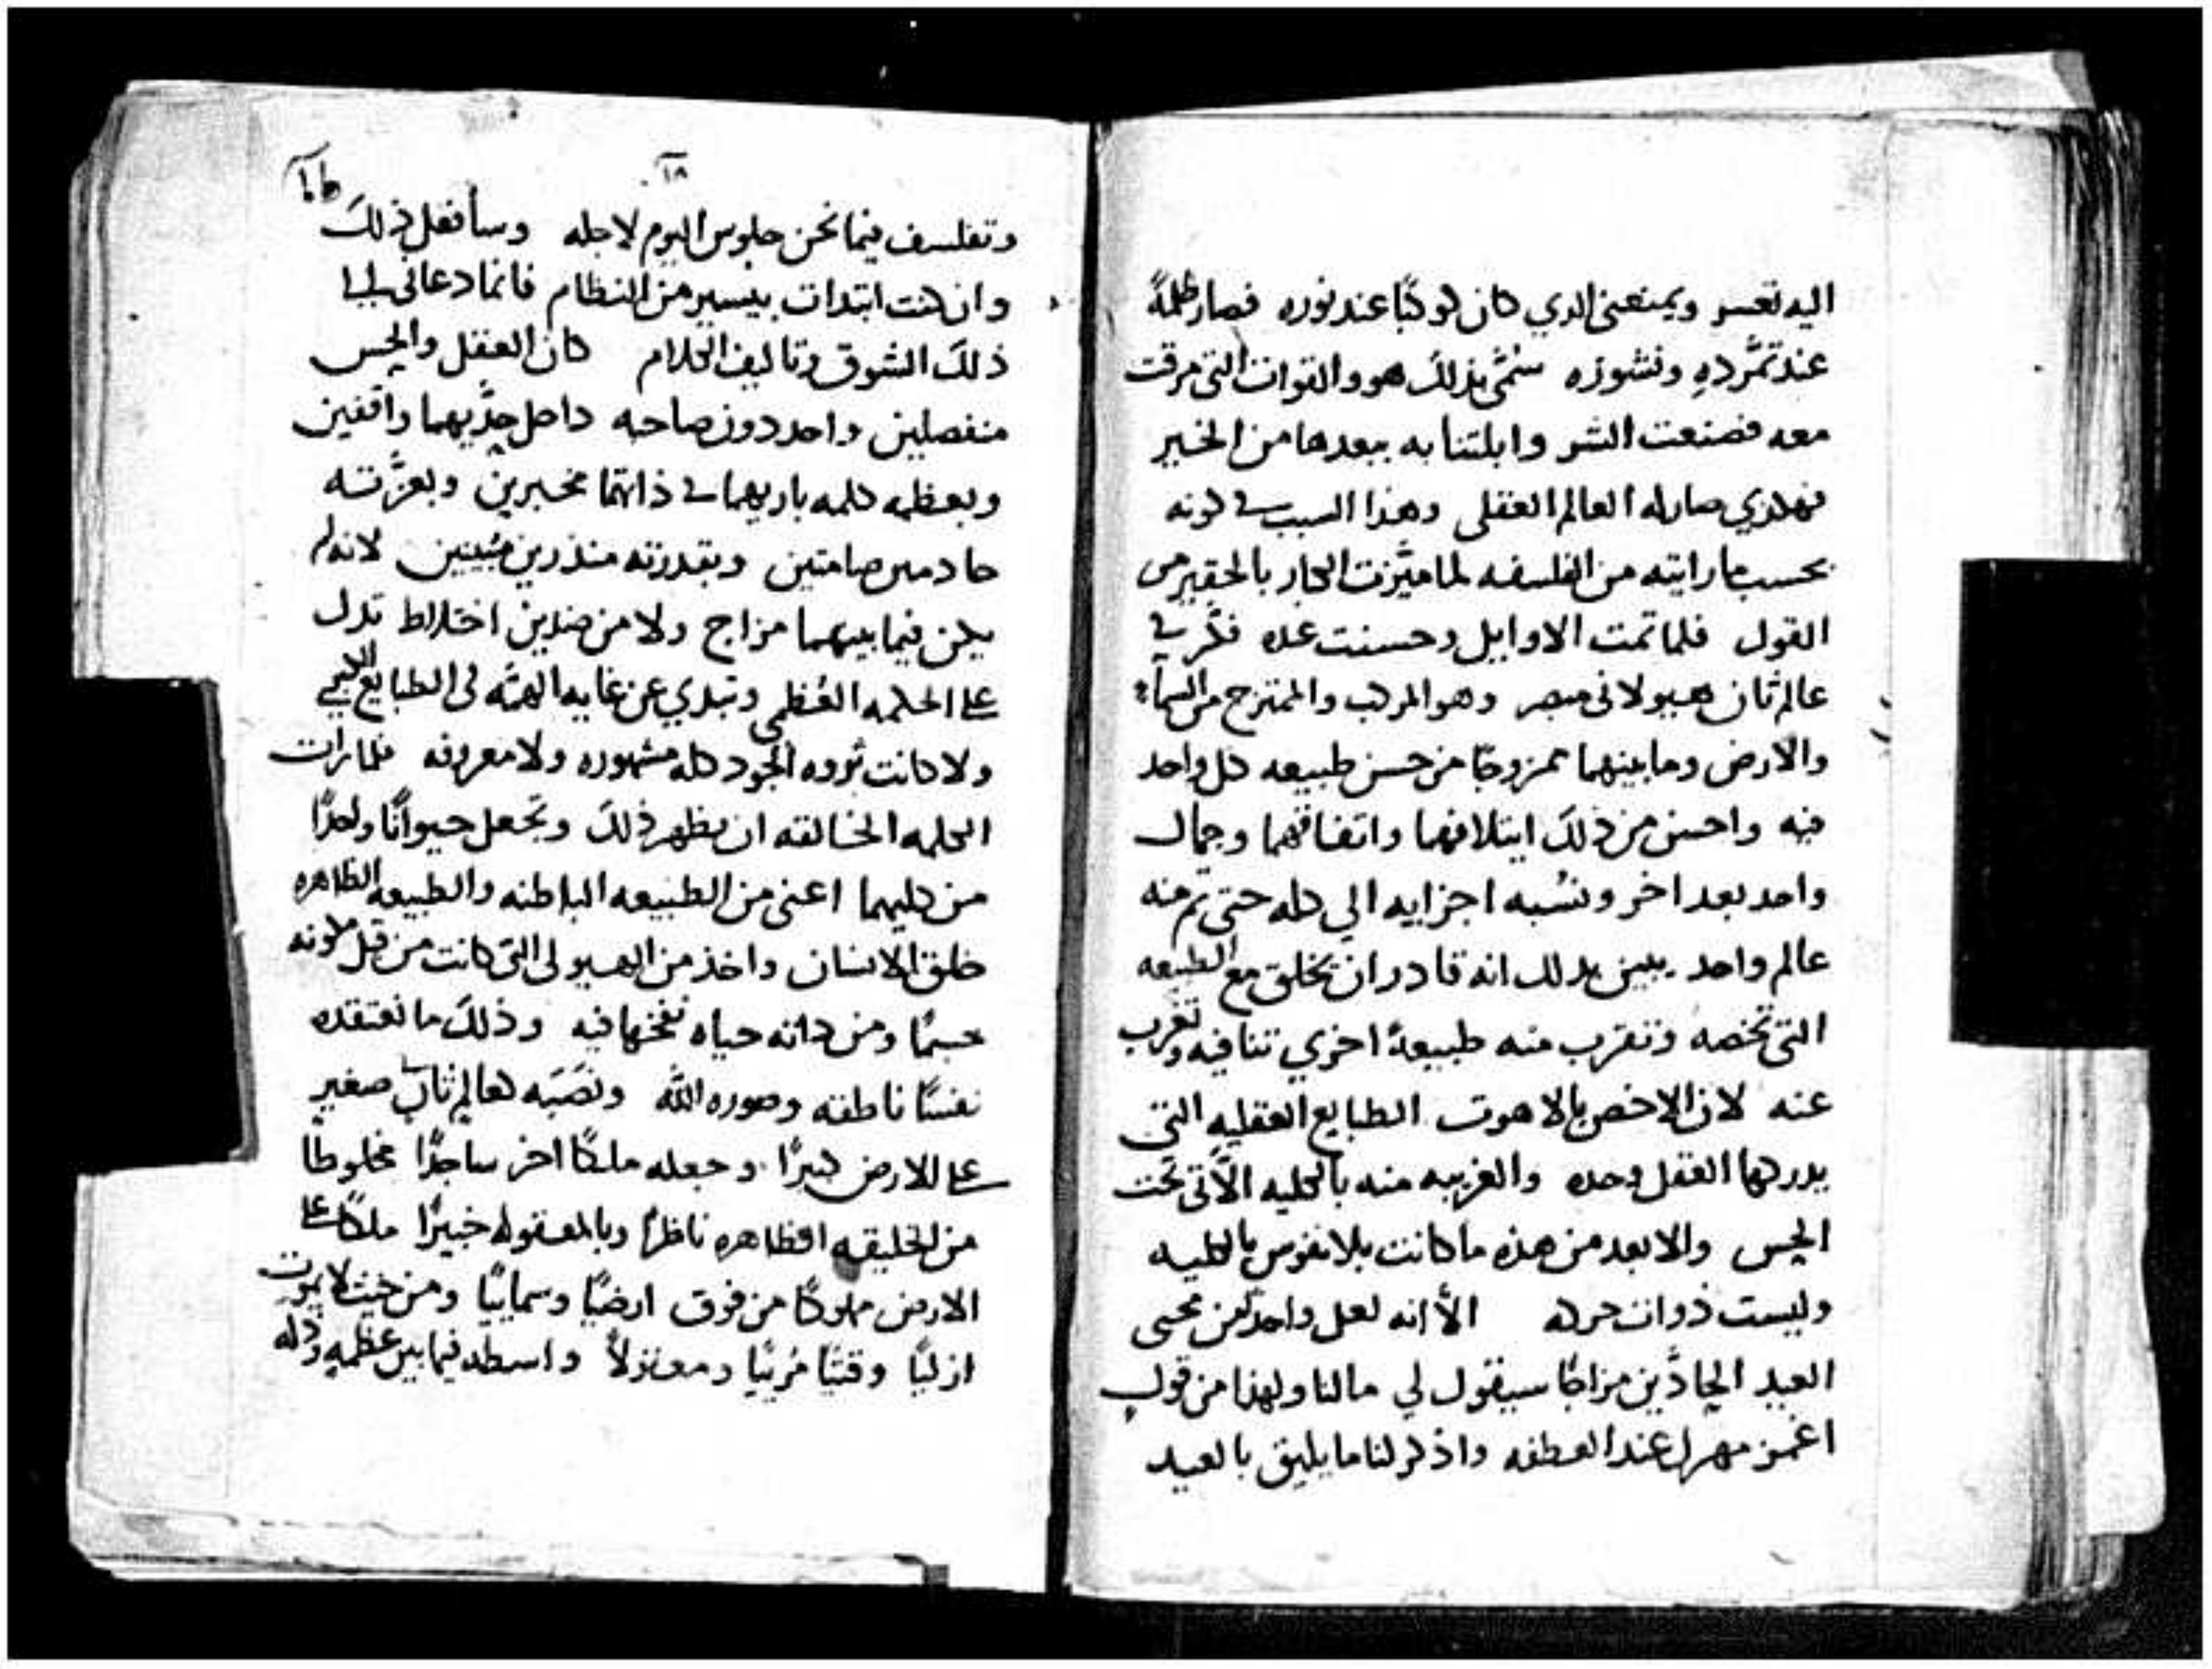 اليه تعسر ويمنعني الدي كان كوكبًا عند نوره فصار ظلمةً
عند تمرُّدهِ ونشوزه سُمِّي بذلكَ هو والقوات التي مرقت
معه فصنعت الشر وابلتنا به ببعدها من الخير
فهكذي صار له العالم العقلي وهذا السبب في كونه
بحسب ما رايته من الفلسفه لما ميَّزت الكبار بالحقير من
القول فلما تمت الاوايل وحسنت عنده فكَّر في
عالم ثان هيولاني مبصر وهو المركب والممتزج من السماء
والارض وما بينهما ممزوجًا من حسن طبيعه كل واحد
فيه واحسن من ذلكَ ايتلافهما واتفاقهما وجمال
واحد بعد اخر ونسُبه اجزايه الي كله حتى تم منه
عالم واحد يبين بدلك انه قادر ان يخلق مع الطبيعه
التي تخصه وتقرب منه طبيعهً اخري تنافيه وتغرب
عنه لان الاخص بالاهوت الطبايع العقليه التي
يدركها العقل وحده والغريبه منه بالكليه الآتي تحت
الحس والابعد من هذه ما كانت بلا نفوس بالكليه
وليست ذوات حركه الاَّ انه لعل واحد من محبي
العيد الحادَّين مزاجًا سيقول لي مالنا ولهذا من قول
اغمز مهرك عند العطفه واذكر لنا ما يليق بالعيد
١٨
وتفلسف فيما نحن جلوس اليوم لاجله وسأفعل ذلكَ
وان كنت ابتدات بيسير من النظام فانما دعاني الى
ذلكَ الشوق وتاليف الكلام كان العقل والحس
منفصلين واحد دون صاحبه داخل حدَّيهما واقفين
وبعظمه كلمه باريهما في ذاتهما مخبرين وبعزَّته
صامتين وبقدرته منذرين مُبينين لانه لم
يكن فيما بينهما مزاج ولا من ضدين اختلاط تدل
على الحكمه العُظمي وتبدي عن غايه الهمَّه في الطبايع
ولا كانت ثروه الجود كله مشهوره ولا معروفه فلما رات
الكلمه الخالقه ان يظهر ذلكَ وتجعل حيوانًا واحدًا
من كليهما اعني من الطبيعه الباطنه والطبيعه الظاهره
خلق الانسان واخذ من الهيولى التي كانت من قبل مكونه
جسمًا ومن ذاته حياه نفخها فيه وذلكَ ما نعتقده
نفسًا ناطقه وصوره اللَّه ونصَبَه كعالم ثانٍ صغير
على الارض كبيرًا وجعله ملاكًا اخر ساجدًا مخلوطًا
من الخليقه الظاهره ناظرًا وبالمعقوله خبيرًا ملكًا على
الارض مملوكًا من فوق ارضيًّا وسماييًّا ومن حيث لا يموت
ازليًا وقتيًا مُرييًا ومعتزلاً واسطه فيما بين عظمهٍ وذله